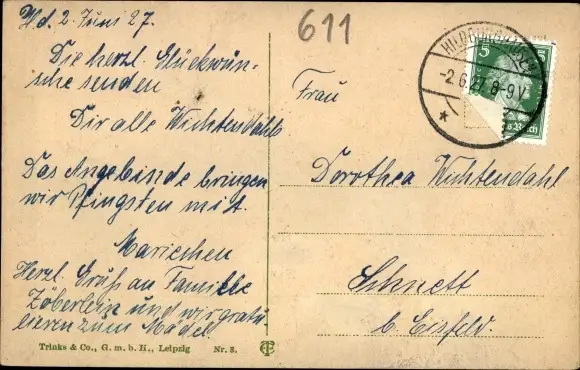 Hd. 2. Juni 27.
Die herzl. Glückwün-
sche senden
Dir alle Wichtendahls
Das Angebinde bringen
wir Pfingsten mit.
Mariechen
Herzl. Gruß an Familie
Zöberlein und wir gratu
lieren zum Mädel.
Trinks & Co., G. m. b. H., Leipzig Nr. 8.
611
HILDBURGHAUSEN
-2.6.27. 8-9V
*
5
Frau
Dorothea Wichtendahl
Schnett
b. Eisfeld.